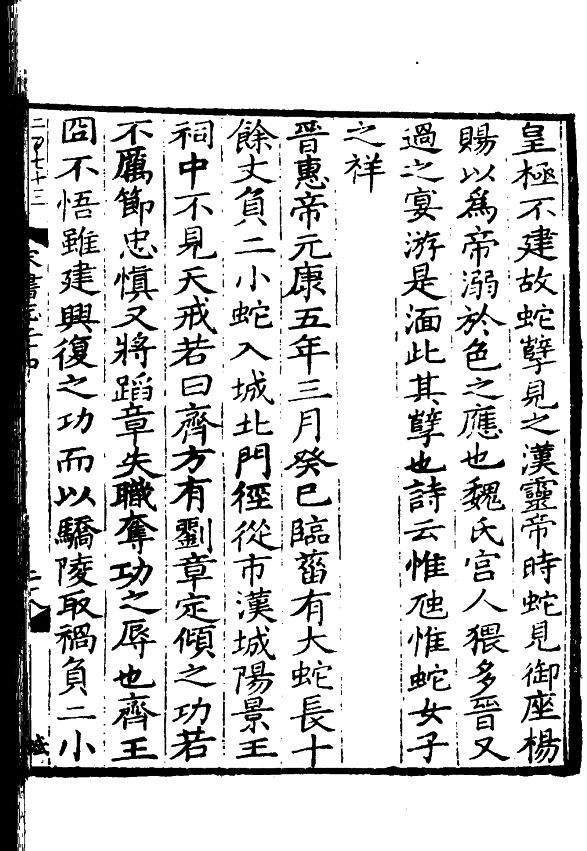 皇極不建故蛇孽見之漢靈帝時蛇見御座楊
賜以爲帝溺於色之應也魏氏宮人猥多晉又
過之宴游是湎此其孽也詩云惟虺惟蛇女子
之祥
晉惠帝元康五年三月癸巳臨菑有大蛇長十
餘丈負二小蛇入城北門徑從市漢城陽景王
祠中不見天戒若曰齊方有劉章定傾之功若
不厲節忠愼又將蹈章失職奪功之辱也齊王
冏不悟雖建興復之功而以驕陵取禍負二小
二百七十三